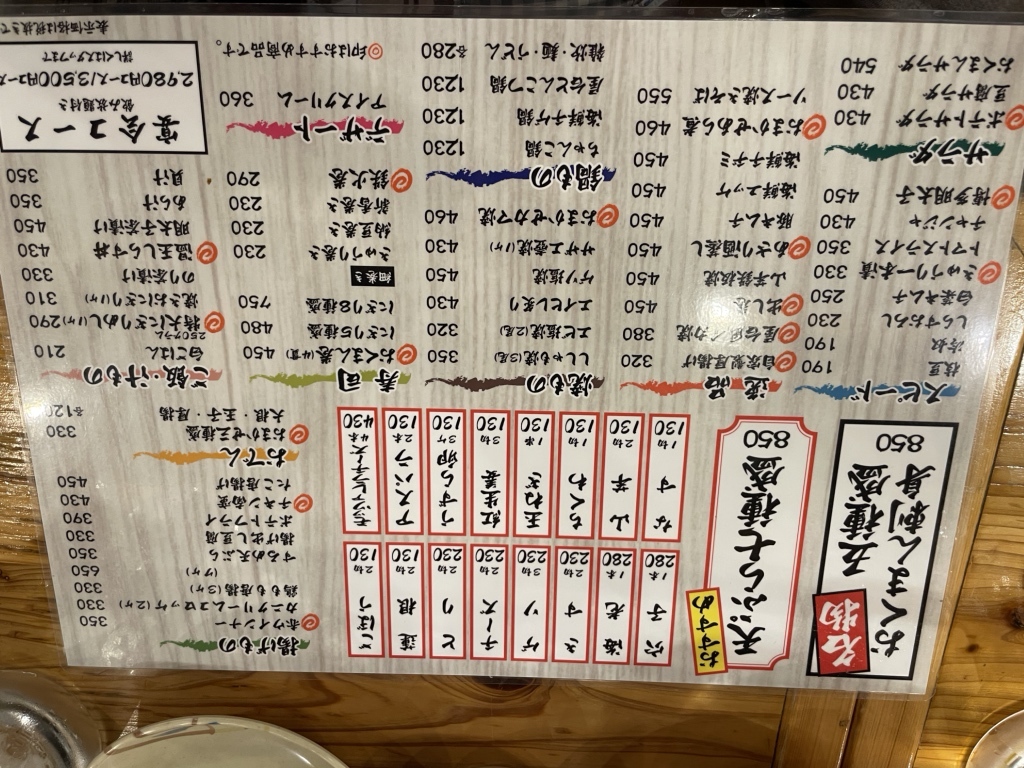 名物
おくまん刺身
五種盛
850
おすすめ
天ぷら七種盛
850
穴子 1本 280
海老 1本 280
きす 2切 230
ゲソ 3切 230
チーズ 2切 230
とり 2切 230
蓮根 2切 130
ごぼう 2切 130
なす 1切 130
山芋 2切 130
ちくわ 1切 130
玉ねぎ 1串 130
紅生姜 3切 130
うずら卵 3ケ 130
アスパラ 2本 130
モッツァレラチーズ 4本 430
揚げもの
赤ウインナー 350
カニクリームコロッケ(2ケ) 330
鶏もも唐揚(3ケ) 330
(7ケ) 650
するめ天ぷら 350
揚げ出し豆腐 330
ポテトフライ 390
チキン南蛮 430
たこ唐揚げ 450
おでん
おまかせ三種盛 330
大根・玉子・厚揚 各120
スピード
枝豆 190
冷奴 190
しらすおろし 230
白菜キムチ 250
きゅうり一本漬 330
トマトスライス 350
チャンジャ 430
博多明太子 450
サラダ
ポテトサラダ 430
豆腐サラダ 430
おくまんサラダ 540
逸品
自家製厚揚げ 320
屋台風イカ焼 380
だし巻 450
山芋鉄板焼 450
あさり酒蒸し 450
豚キムチ 450
海鮮ユッケ 450
海鮮チヂミ 450
おまかせあら煮 460
ソース焼きそば 550
焼もの
ししゃも焼(3尾) 350
エビ塩焼(2尾) 320
エイヒレ炙り 430
ゲソ塩焼 450
サザエ壺焼(1ケ) 430
おまかせカマ焼 460
鍋もの
ちゃんこ鍋 1230
海鮮チゲ鍋 1230
屋台とんこつ鍋 1230
雑炊・麺・うどん 各280
寿司
おくまん巻(1貫) 450
にぎり5種盛 480
にぎり8種盛 750
細巻き
きゅうり巻き 230
納豆巻き 230
新香巻き 230
鉄火巻 290
デザート
アイスクリーム 360
印はおすすめ商品です。
ご飯・汁もの
白ごはん 210
250グラム
特大にぎりめし(1ケ) 290
焼きおにぎり(1ケ) 310
のり茶漬け 330
温玉しらす丼 430
明太子茶漬け 450
あら汁 350
貝汁 350
宴会コース
飲み放題付き
2,980円コース/3,500円コース
詳しくはスタッフまで
表示価格は税抜きで